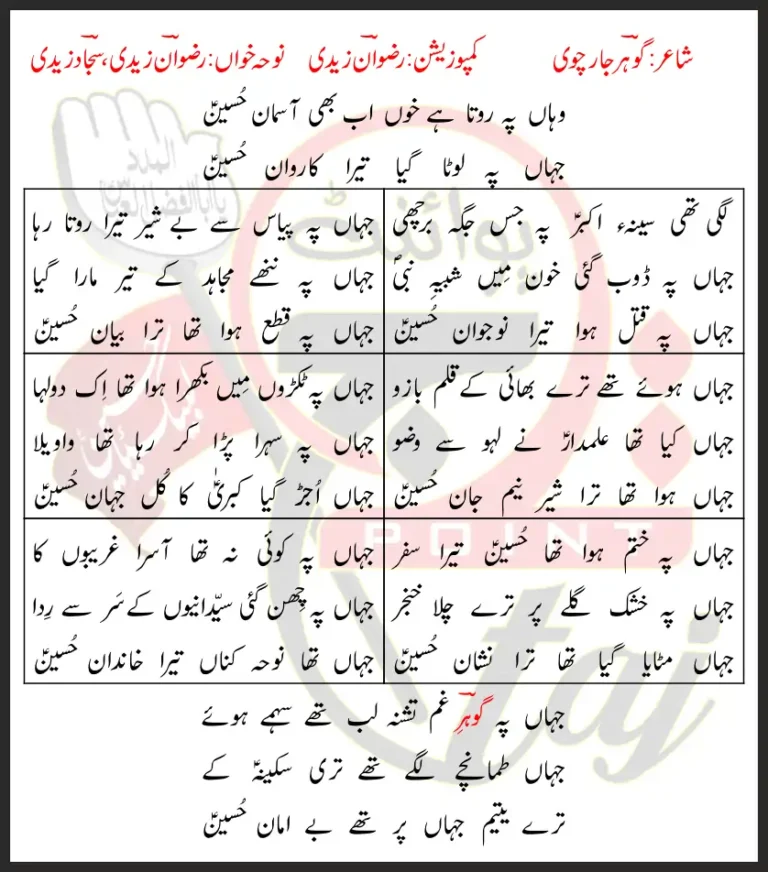 شاعر: گوہر جارچوی کمپوزیشن: رضوان زیدی نوحہ خواں: رضوان زیدی، سجاد زیدی
وہاں پہ روتا ہے خوں اب بھی آسمان حُسینؑ
جہاں پہ لوٹا گیا تیرا کاروان حُسینؑ
لگی تھی سینہء اکبرؑ پہ جس جگہ برچھی
جہاں پہ ڈوب گئی خون مِیں شبیہِ نبیؐ
جہاں پہ قتل ہوا تیرا نوجوان حُسینؑ
جہاں پہ پیاس سے بے شیر تیرا روتا رہا
جہاں پہ ننھے مجاہد کے تیر مارا گیا
جہاں پہ قطع ہوا تھا ترا بیان حُسینؑ
جہاں ہوئے تھے ترے بھائی کے قلم بازو
جہاں کیا تھا علمدارؑ نے لہو سے وضو
جہاں ہوا تھا ترا شیر نیم جان حُسینؑ
جہاں پہ ٹکڑوں مِیں بکھرا ہوا تھا اِک دولہا
جہاں پہ سہرا پڑا کر رہا تھا واویلا
جہاں اُجڑ گیا کبریٰؑ کا کُل جہان حُسینؑ
جہاں پہ ختم ہوا تھا حُسینؑ تیرا سفر
جہاں پہ خشک گلے پر ترے چلا خنجر
جہاں مٹایا گیا تھا ترا نشان حُسینؑ
جہاں پہ کوئی نہ تھا آسرا غریبوں کا
جہاں پہ چِھن گئی سیّدانیوں کے سَر سے رِدا
جہاں تھا نوحہ کناں تیرا خاندان حُسینؑ
جہاں پہ گوہرِ غم تشنہ لب تھے سہمے ہوئے
جہاں طمانچے لگے تھے تری سکینہؑ کے
ترے یتیم جہاں پر تھے بے امان حُسینؑ
المدد
پوائنٹ
POINT
taj